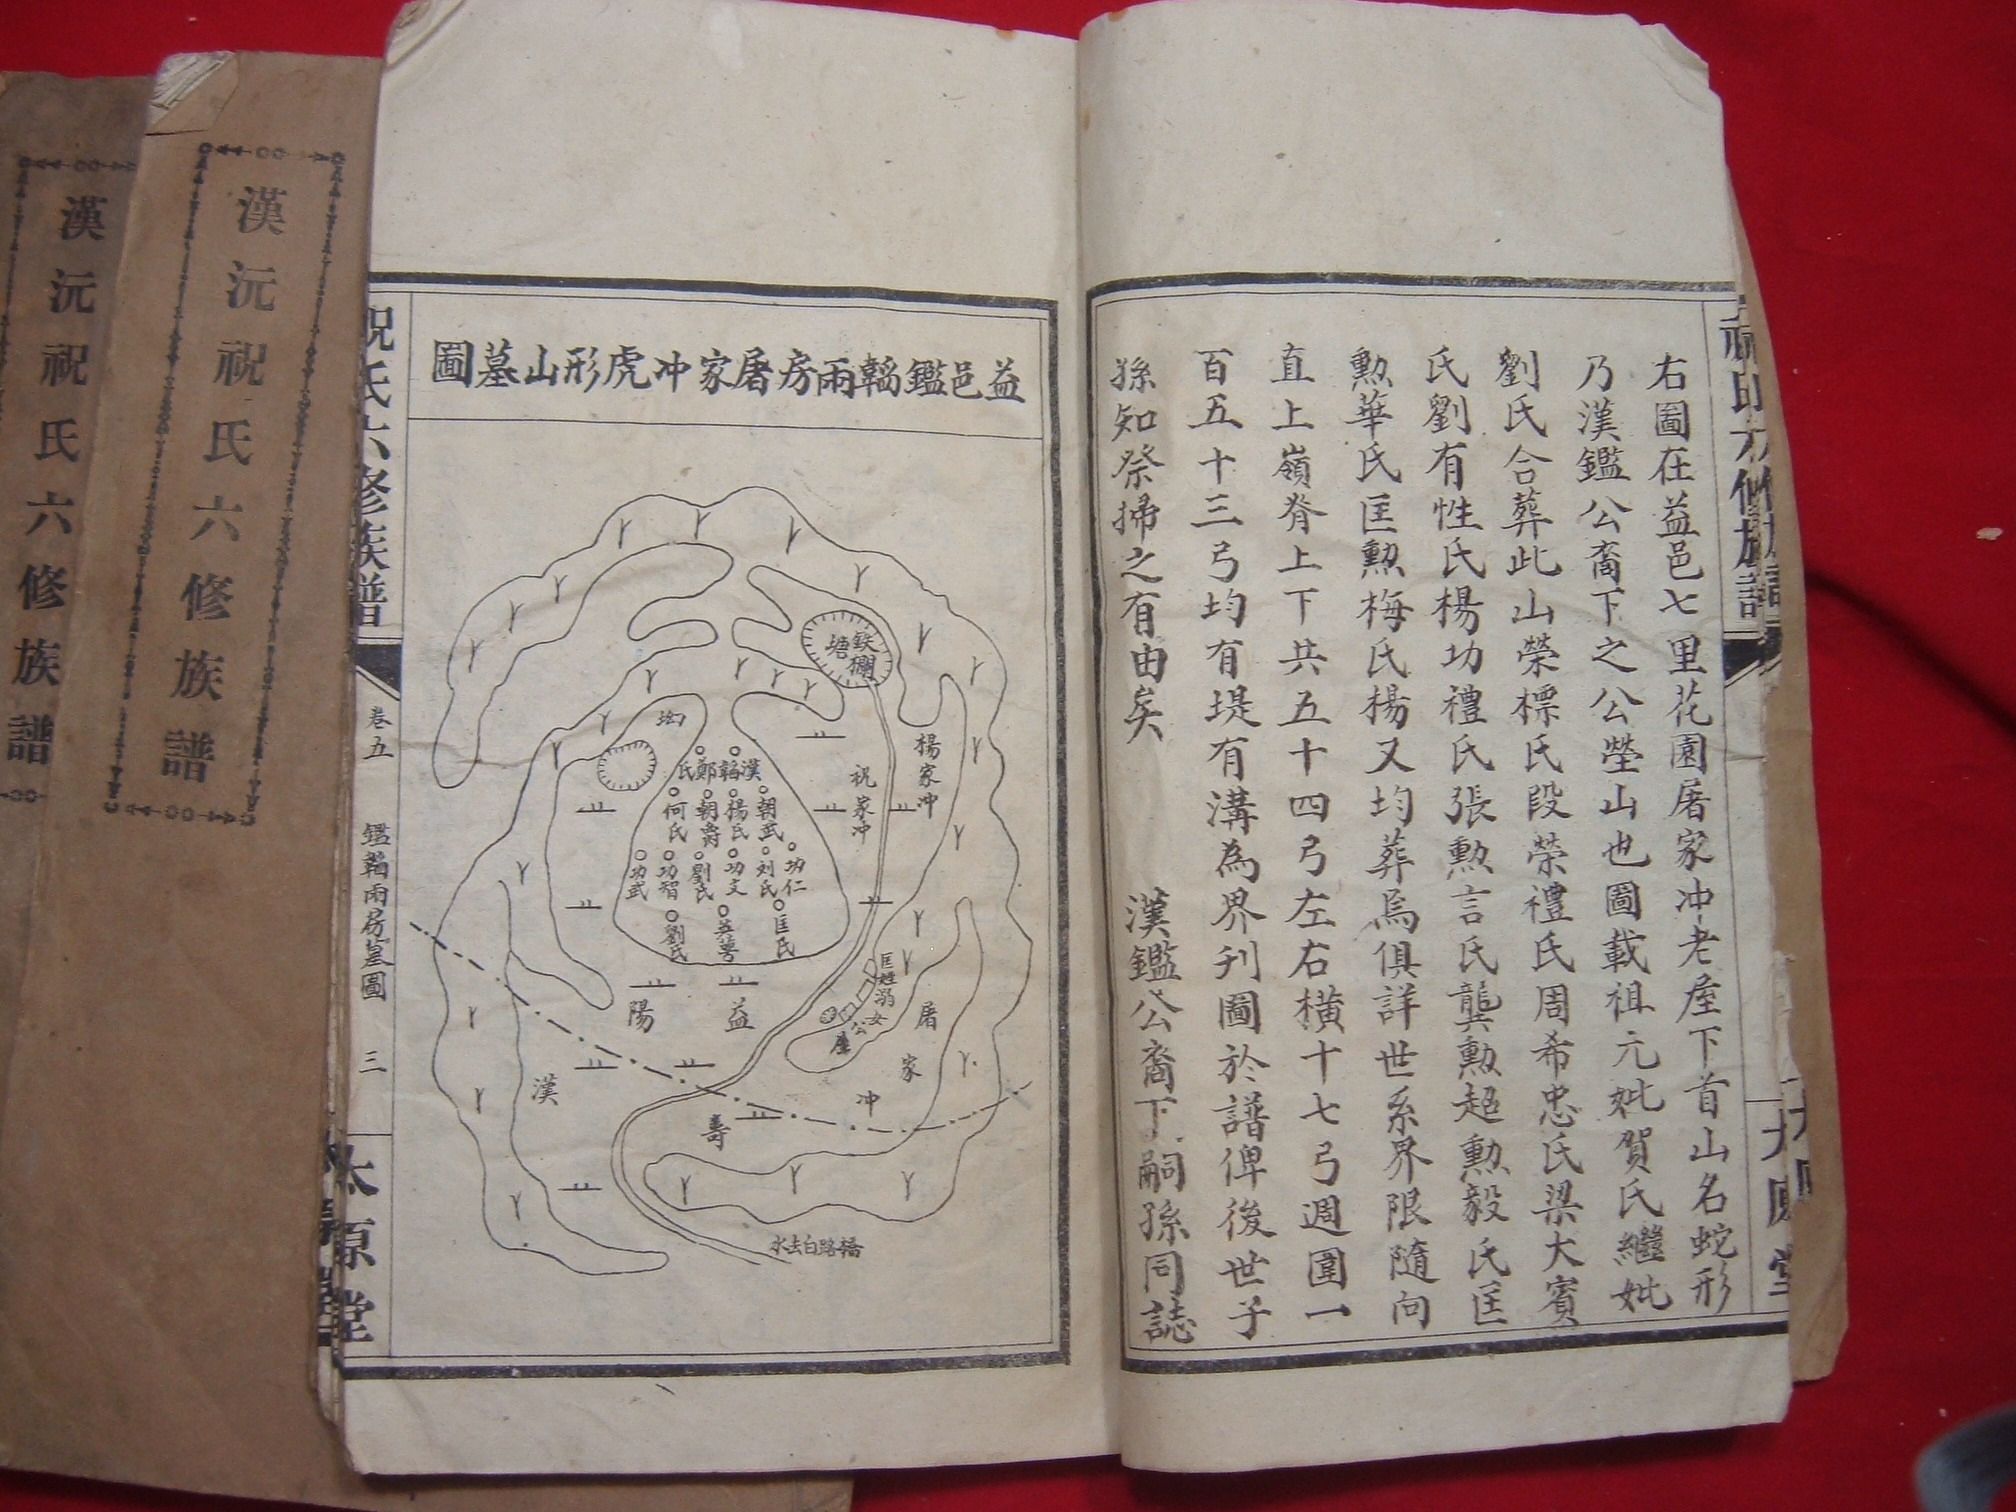 右圖在益邑七里花園屠家冲老屋下首山名蛇形
乃漢鑑公裔下之公塋山也圖載祖元妣賀氏繼妣
劉氏合葬此山榮標氏段榮禮氏周希忠氏梁大賓
氏劉有性氏楊功禮氏張勲言氏龔勲超勲毅氏匡
勲華氏匡勲梅氏楊又均葬焉俱詳世系界限隨向
直上嶺脊上下共五十四弓左右横十七弓週圍一
百五十三弓均有堤有溝為界刋圖於譜俾後世子
孫知祭掃之有由矣 漢鑑公裔下嗣孫同誌
益邑鑑韜兩房屠家冲虎形山墓圖
鉄欄塘
楊家冲
祝家冲
坳
漢韜鄭氏
朝武
楊氏
朝爵
何氏
功仁
刘氏
功文
劉氏
功智
功武
匡氏
劉氏
匡姓溺女公塋
屠家冲
益陽
漢壽
水去白路橋
祝氏六修族譜
卷五
鑑韜兩房墓圖
三
太原堂
漢沅祝氏六修族譜
漢沅祝氏六修族譜